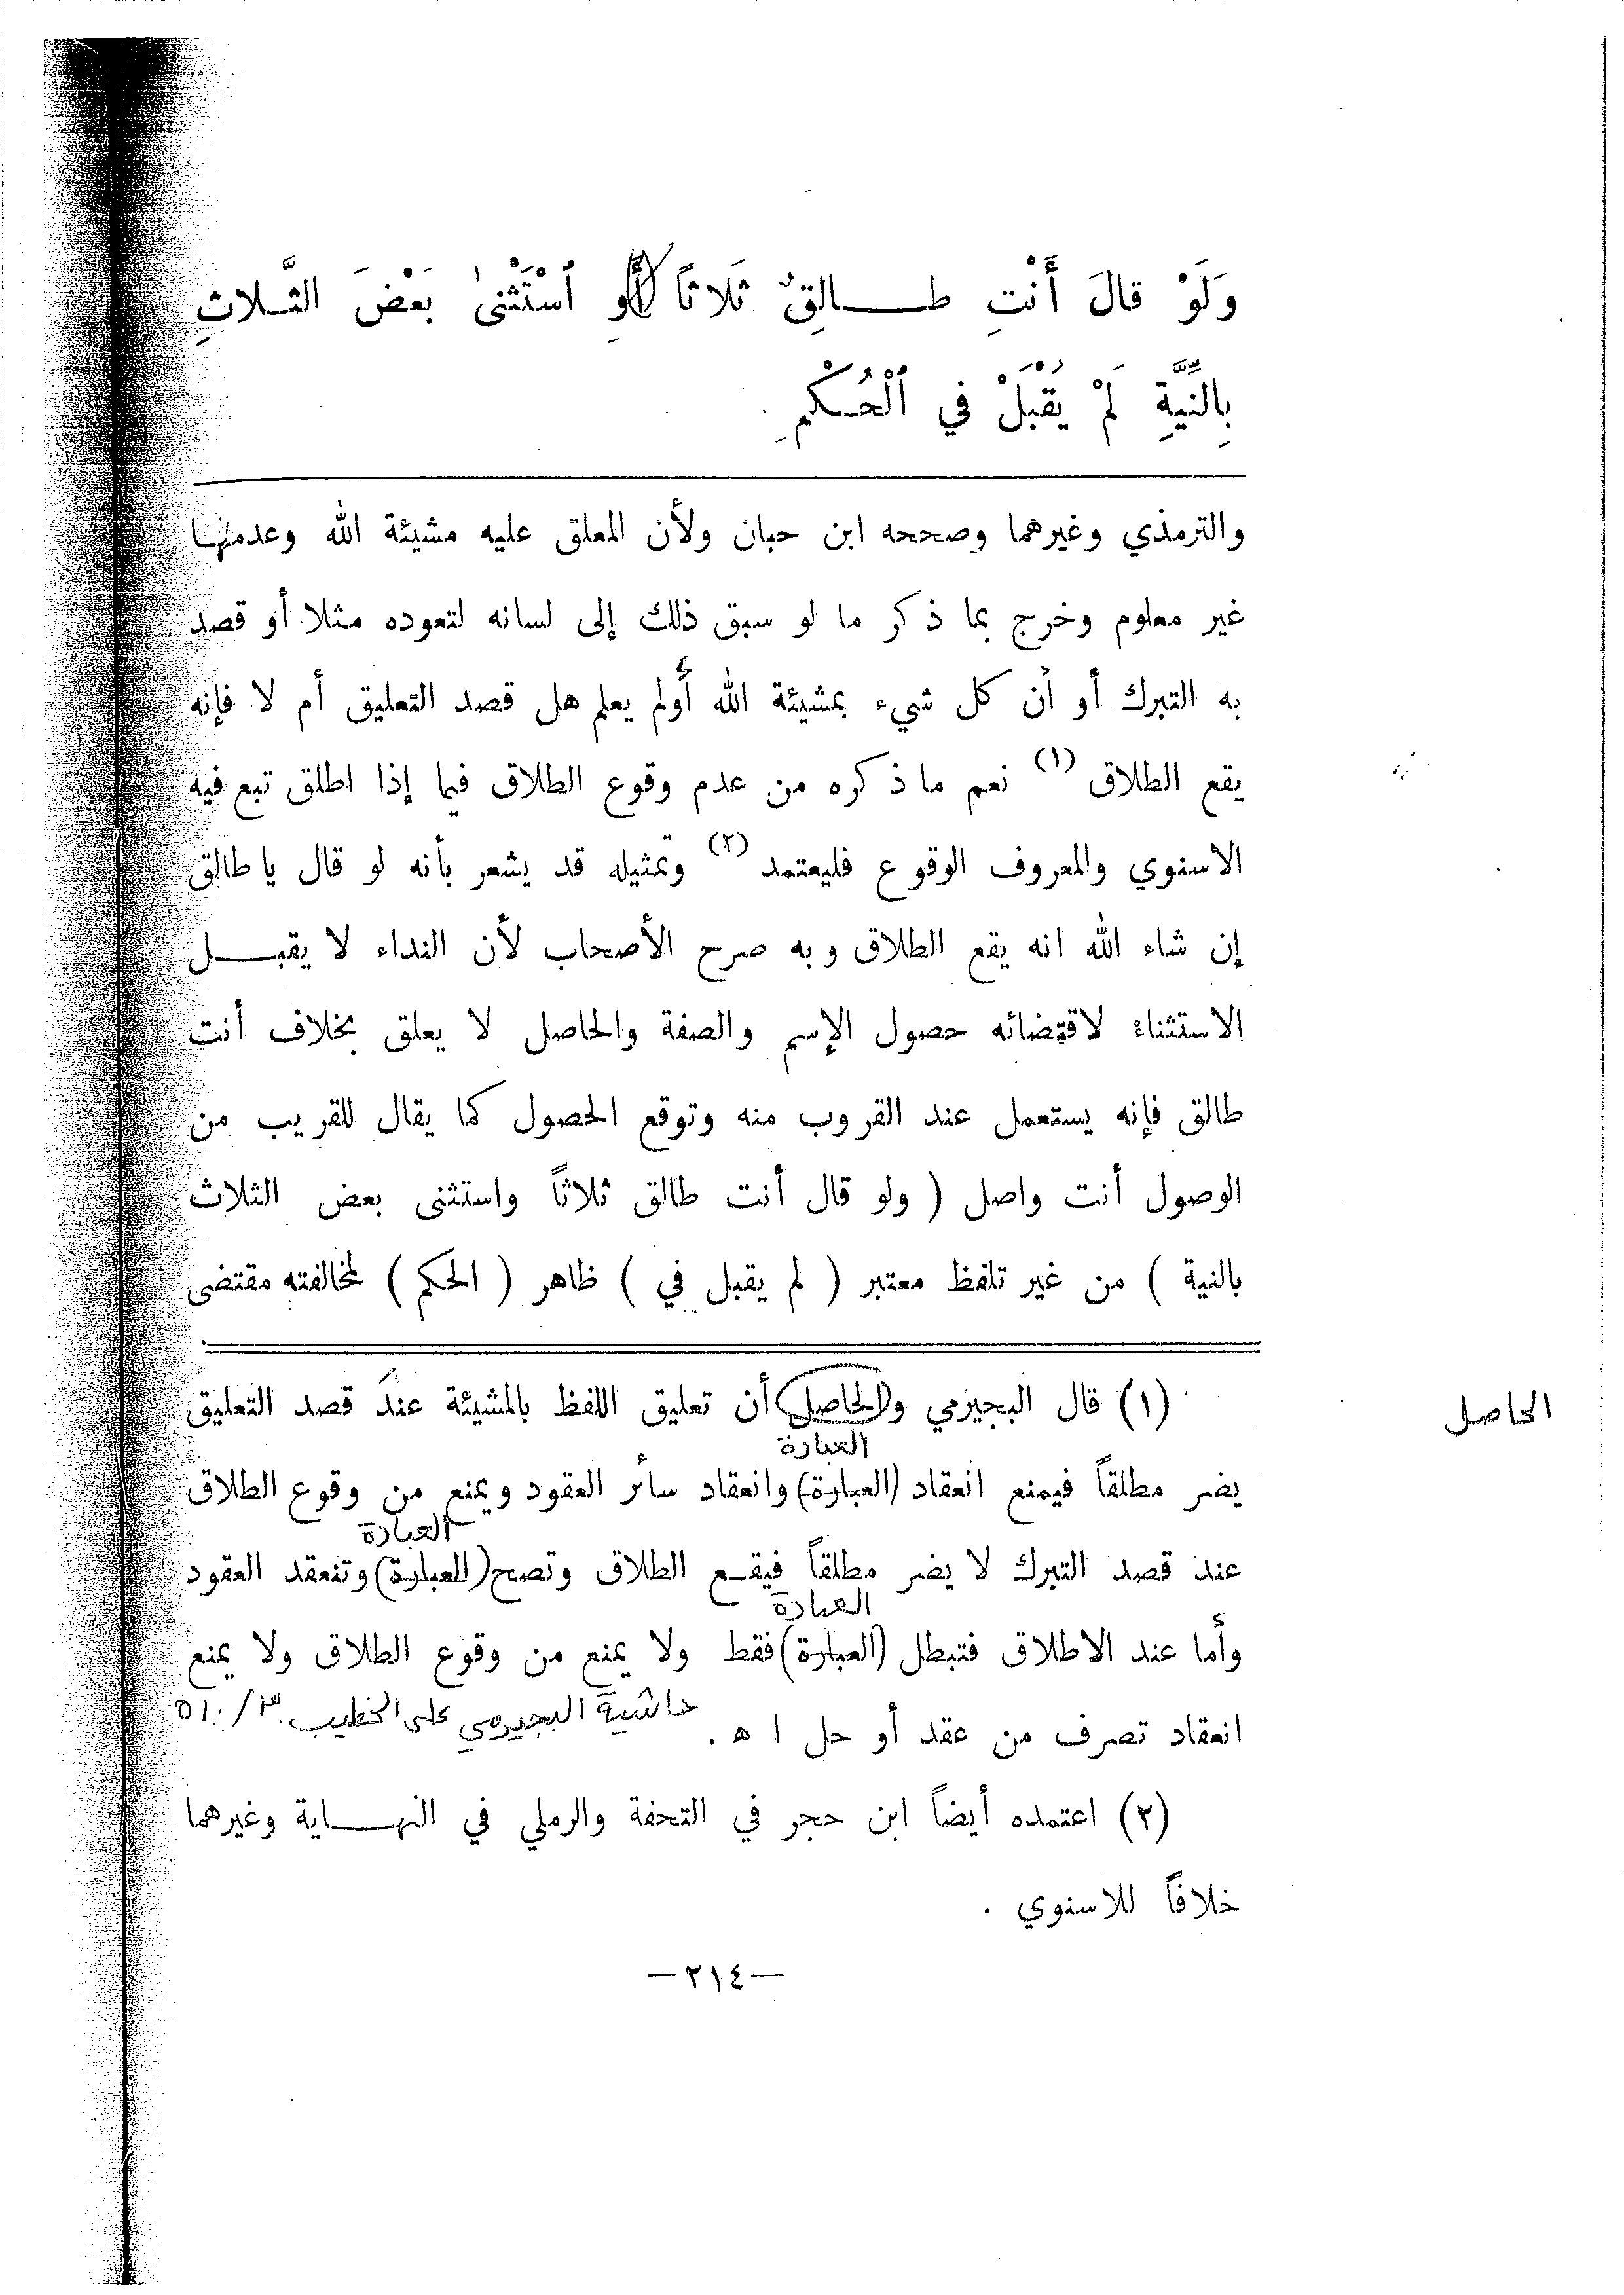 وَلَوْ قالَ أَنْتِ طالِقٌ ثَلاثاً أَوِ ٱسْتَثْنىٰ بَعْضَ الثَّلاثِ
بِالنِّيَّةِ لَمْ يُقْبَلْ في ٱلْحُكْمِ
والترمذي وغيرهما وصححه ابن حبان ولأن المعلق عليه مشيئة الله وعدمها
غير معلوم وخرج بما ذكر ما لو سبق ذلك إلى لسانه لتعوده مثلا أو قصد
به التبرك أو أن كل شيء بمشيئة الله أولم يعلم هل قصد التعليق أم لا فإنه
يقع الطلاق (١) نعم ما ذكره من عدم وقوع الطلاق فيما إذا اطلق تبع فيه
الاسنوي والمعروف الوقوع فليعتمد (٢) وتمثيله قد يشعر بأنه لو قال يا طالق
إن شاء الله انه يقع الطلاق وبه صرح الأصحاب لأن النداء لا يقبـــل
الاستثناء لاقتضائه حصول الإسم والصفة والحاصل لا يعلق بخلاف أنت
طالق فإنه يستعمل عند القروب منه وتوقع الحصول كما يقال للقريب من
الوصول أنت واصل ( ولو قال أنت طالق ثلاثاً واستثنى بعض الثلاث
بالنية ) من غير تلفظ معتبر ( لم يقبل في ) ظاهر ( الحكم ) لمخالفته مقتضى
(١) قال البجيرمي والحاصل أن تعليق اللفظ بالمشيئة عند قصد التعليق
الحاصل
العبارة
يضر مطلقاً فيمنع انعقاد (العبارة) وانعقاد سائر العقود ويمنع من وقوع الطلاق
العبارة
عند قصد التبرك لا يضر مطلقاً فيقع الطلاق وتصح (العبارة) وتنعقد العقود
العبارة
وأما عند الاطلاق فتبطل (العبارة) فقط ولا يمنع من وقوع الطلاق ولا يمنع
انعقاد تصرف من عقد أو حل ا ه . حاشية البجيرمي على الخطيب ٥١٠/٣
(٢) اعتمده أيضاً ابن حجر في التحفة والرملي في النهـــاية وغيرهما
خلافاً للاسنوي .
—٢١٤—